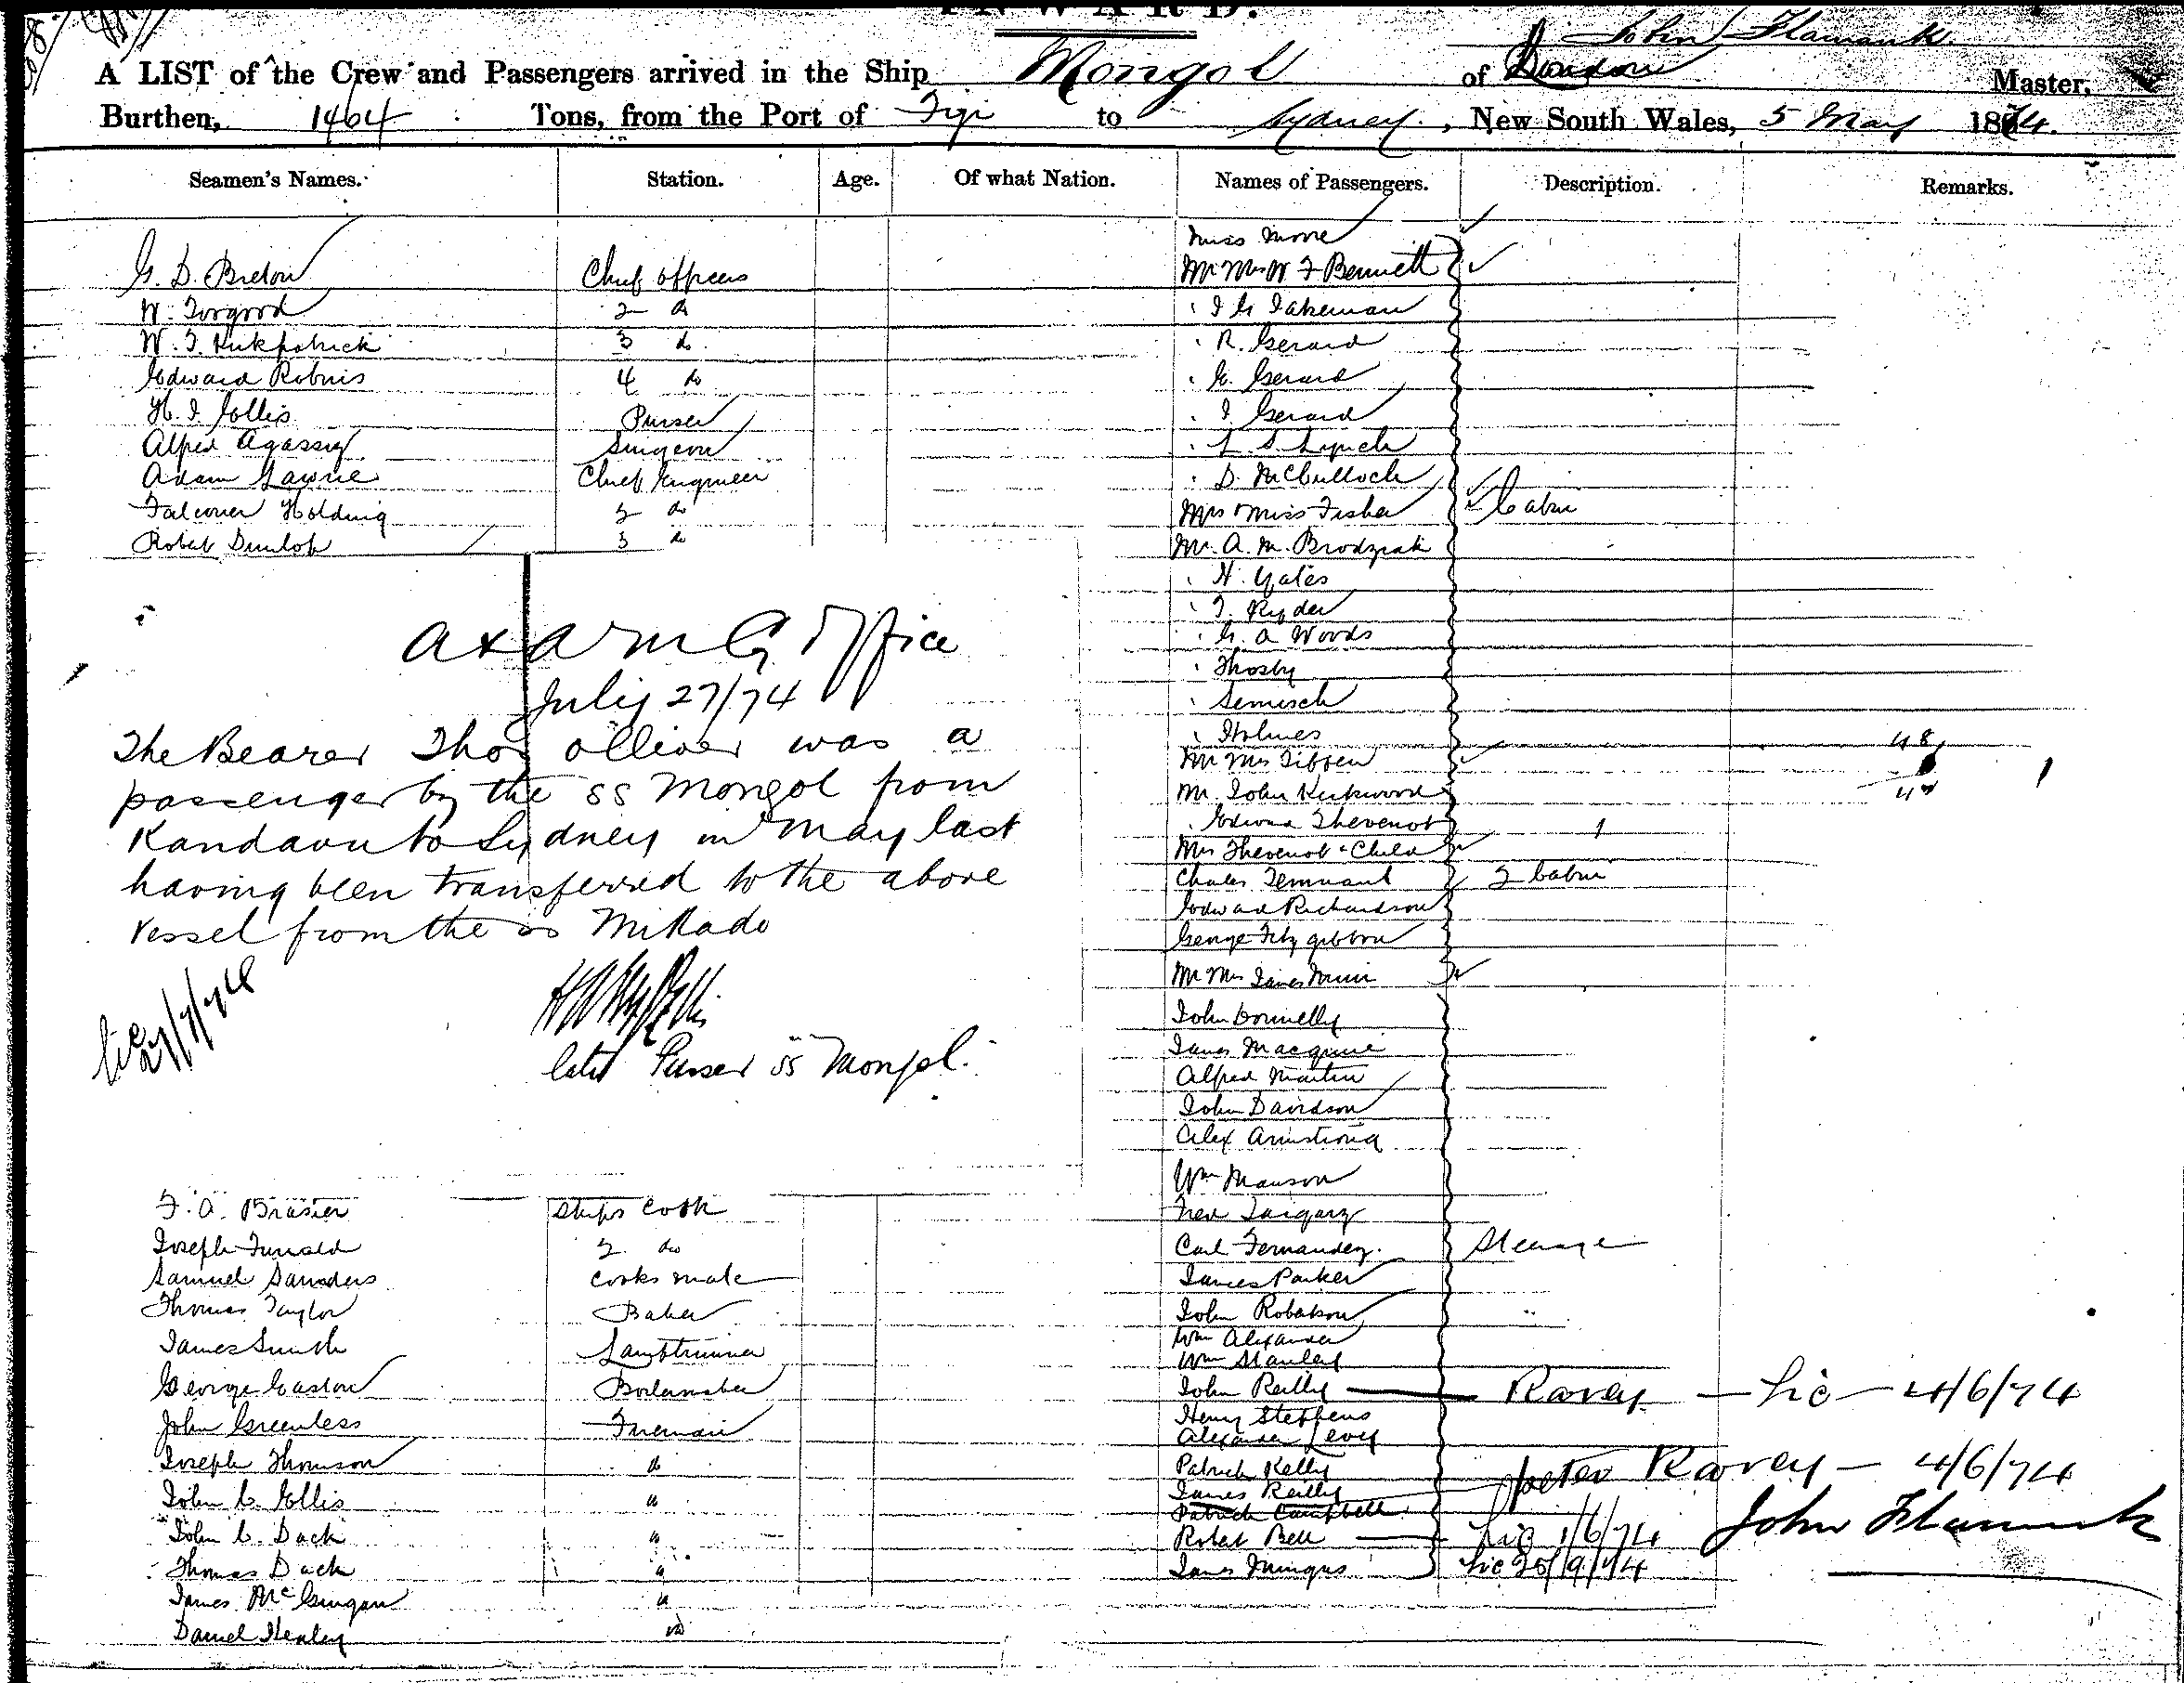 INWARD.
John Flamank
A LIST of the Crew and Passengers arrived in the Ship Mongol of London Master,
Burthen, 1464 Tons, from the Port of Fiji to Sydney, New South Wales, 5 May 1874.
Seamen's Names. Station. Age. Of what Nation. Names of Passengers. Description. Remarks.
G. D. Breton Chief officer
W. Torgood 2 do
W. T. Kirkpatrick 3 do
Edward Robins 4 do
H. I. Ellis Purser
Alfred Agassiz Surgeon
Adam Lawrie Chief Engineer
Falconer Holding 2 do
Robert Dunlop 3 do
A & A M Co Office
July 27/74
The Bearer Thos olliver was a
passenger by the ss Mongol from
Kandavu to Sydney in May last
having been transferred to the above
vessel from the ss Mikado
late Purser ss Mongol.
Lic 27/7/74
F. A. Brasier Ships Cook
Joseph 2 do
Samuel Saunders Cooks mate
Thomas Taylor Baker
James Smith Lamptrimmer
George Easton Boilermaker
John Greenless Fireman
Joseph Thomson do
John C. Ellis "
John C. Dack "
Thomas Dack "
James McGuigan "
Daniel Henley do
Miss Moore
Mr Mrs W F Bennett
" I G Takeman
" R. Gerard
" E. Gerard
" I. Gerard
" L. S. Lynch
" D. McCulloch
Mrs & Miss Fisher Cabin
Mr. A. M. Brodziak
" H. Yates
" T. Ryder
" G. A Woods
" Throsby
" Semisch
" Holmes
Mr Mrs Tiffen
Mr. John Kirkwood
" Edward Thevenot 1
Mrs Thevenot & Child
Charles Tennant 2 Cabin
Edward Richardson
George Fitzgibbon
Mr Mrs James Muir
John Donnelly
James Macquire
Alfred Martin
John Davidson
Alex Armstrong
Wm Manson
Fred
Carl Fernandez. Steerage
James Parker
John Robertson
Wm Alexander
Wm Stanley
John Reilly — Ravey — Lic — 4/6/74
Henry Steffens
Alexander Levy
Patrick Kelly
James Reilly — Peter Ravey — 4/6/74
Patrick Campbell
Robert Bell — Lic 1/6/74 John Flamank
James Mingus Lic 25/9/74
48